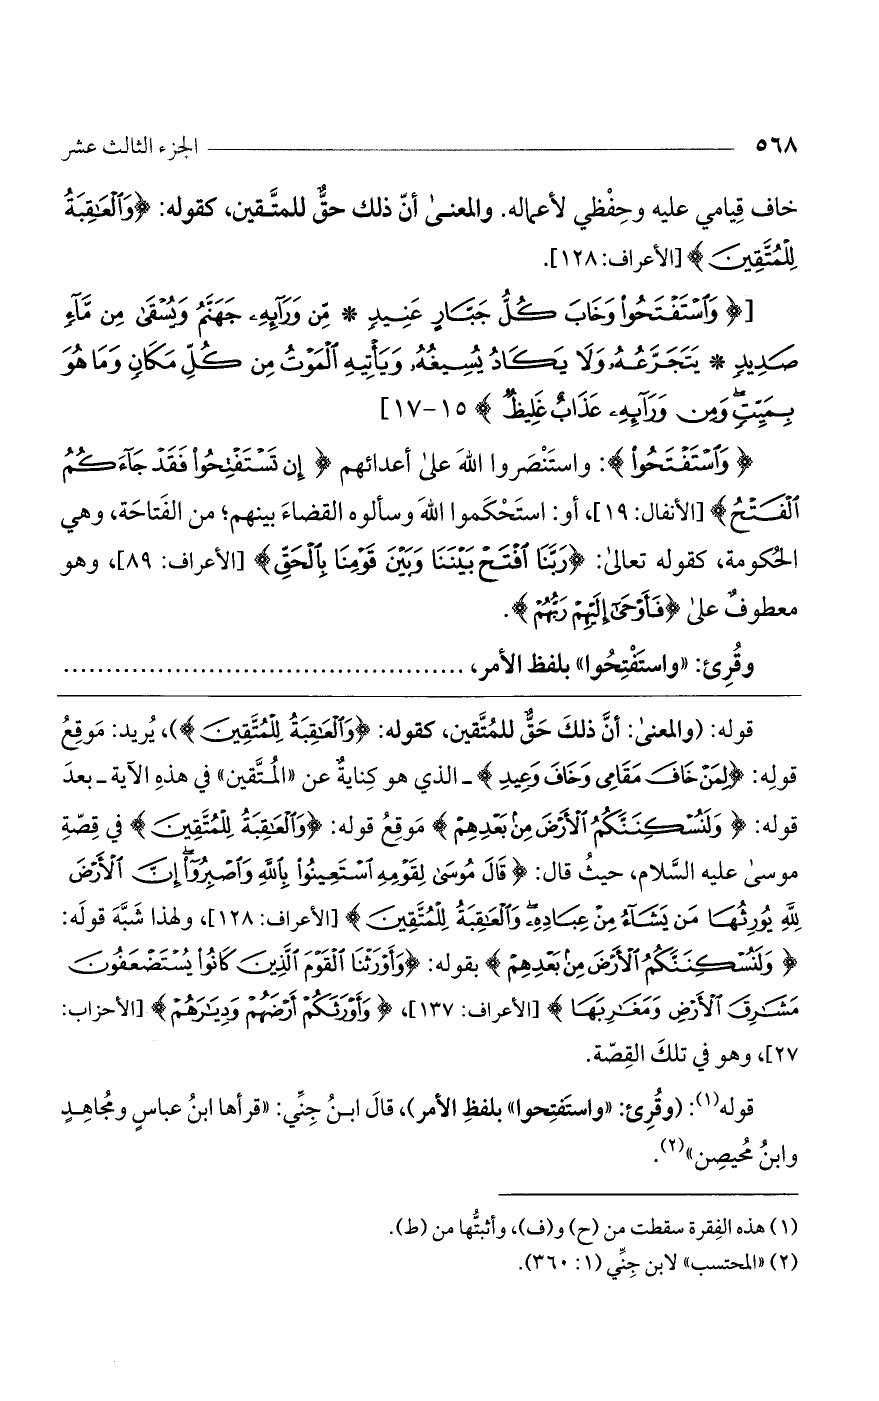 ٥٦٨ الجزء الثالث عشر
خاف قِيامي عليه وحِفْظي لأعماله. والمعنىٰ أنّ ذلك حقٌّ للمتَّقين، كقوله: ﴿وَٱلْعَـٰقِبَةُ
لِلْمُتَّقِينَ﴾ [الأعراف: ١٢٨].
[﴿وَٱسْتَفْتَحُوا۟ وَخَابَ كُلُّ جَبَّارٍ عَنِيدٍ * مِّن وَرَآئِهِۦ جَهَنَّمُ وَيُسْقَىٰ مِن مَّآءٍ
صَدِيدٍ * يَتَجَرَّعُهُۥ وَلَا يَكَادُ يُسِيغُهُۥ وَيَأْتِيهِ ٱلْمَوْتُ مِن كُلِّ مَكَانٍ وَمَا هُوَ
بِمَيِّتٍ ۖ وَمِن وَرَآئِهِۦ عَذَابٌ غَلِيظٌ﴾ ١٥-١٧]
﴿وَٱسْتَفْتَحُوا۟﴾: واستَنْصَروا اللهَ علىٰ أعدائهم ﴿إِن تَسْتَفْتِحُوا۟ فَقَدْ جَآءَكُمُ
ٱلْفَتْحُ﴾ [الأنفال: ١٩]، أو: استَحْكَموا اللهَ وسألوه القضاءَ بينهم؛ من الفَتاحَة، وهي
الحُكومة، كقوله تعالىٰ: ﴿رَبَّنَا ٱفْتَحْ بَيْنَنَا وَبَيْنَ قَوْمِنَا بِٱلْحَقِّ﴾ [الأعراف: ٨٩]، وهو
معطوفٌ علىٰ ﴿فَأَوْحَىٰٓ إِلَيْهِمْ رَبُّهُمْ﴾.
وقُرِئ: «واستَفْتِحُوا» بلفظ الأمر، ...............................................
قوله: (والمعنىٰ: أنَّ ذلكَ حَقٌّ للمُتَّقين، كقوله: ﴿وَٱلْعَـٰقِبَةُ لِلْمُتَّقِينَ﴾)، يُريد: مَوقِعُ
قولِه: ﴿لِمَنْ خَافَ مَقَامِى وَخَافَ وَعِيدِ﴾ ـ الذي هو كِنايةٌ عن «المُتَّقين» في هذهِ الآية ـ بعدَ
قوله: ﴿وَلَنُسْكِنَنَّكُمُ ٱلْأَرْضَ مِنۢ بَعْدِهِمْ﴾ مَوقِعُ قوله: ﴿وَٱلْعَـٰقِبَةُ لِلْمُتَّقِينَ﴾ في قِصّةِ
موسىٰ عليه السَّلام، حيثُ قال: ﴿قَالَ مُوسَىٰ لِقَوْمِهِ ٱسْتَعِينُوا۟ بِٱللَّهِ وَٱصْبِرُوٓا۟ ۖ إِنَّ ٱلْأَرْضَ
لِلَّهِ يُورِثُهَا مَن يَشَآءُ مِنْ عِبَادِهِۦ ۖ وَٱلْعَـٰقِبَةُ لِلْمُتَّقِينَ﴾ [الأعراف: ١٢٨]، ولهذا شبَّهَ قولَه:
﴿وَلَنُسْكِنَنَّكُمُ ٱلْأَرْضَ مِنۢ بَعْدِهِمْ﴾ بقوله: ﴿وَأَوْرَثْنَا ٱلْقَوْمَ ٱلَّذِينَ كَانُوا۟ يُسْتَضْعَفُونَ
مَشَـٰرِقَ ٱلْأَرْضِ وَمَغَـٰرِبَهَا﴾ [الأعراف: ١٣٧]، ﴿وَأَوْرَثَكُمْ أَرْضَهُمْ وَدِيَـٰرَهُمْ﴾ [الأحزاب:
٢٧]، وهو في تلكَ القِصّة.
قوله(١): (وقُرِئ: «واستَفتِحوا» بلفظِ الأمر)، قالَ ابنُ جِنِّي: «قرأها ابنُ عباسٍ ومُجاهِدٍ
وابنُ مُحيصِن»(٢).
(١) هذه الفِقرة سقطت من (ح) و(ف)، وأثبتُّها من (ط).
(٢) «المحتسب» لابن جِنِّي (١: ٣٦٠).